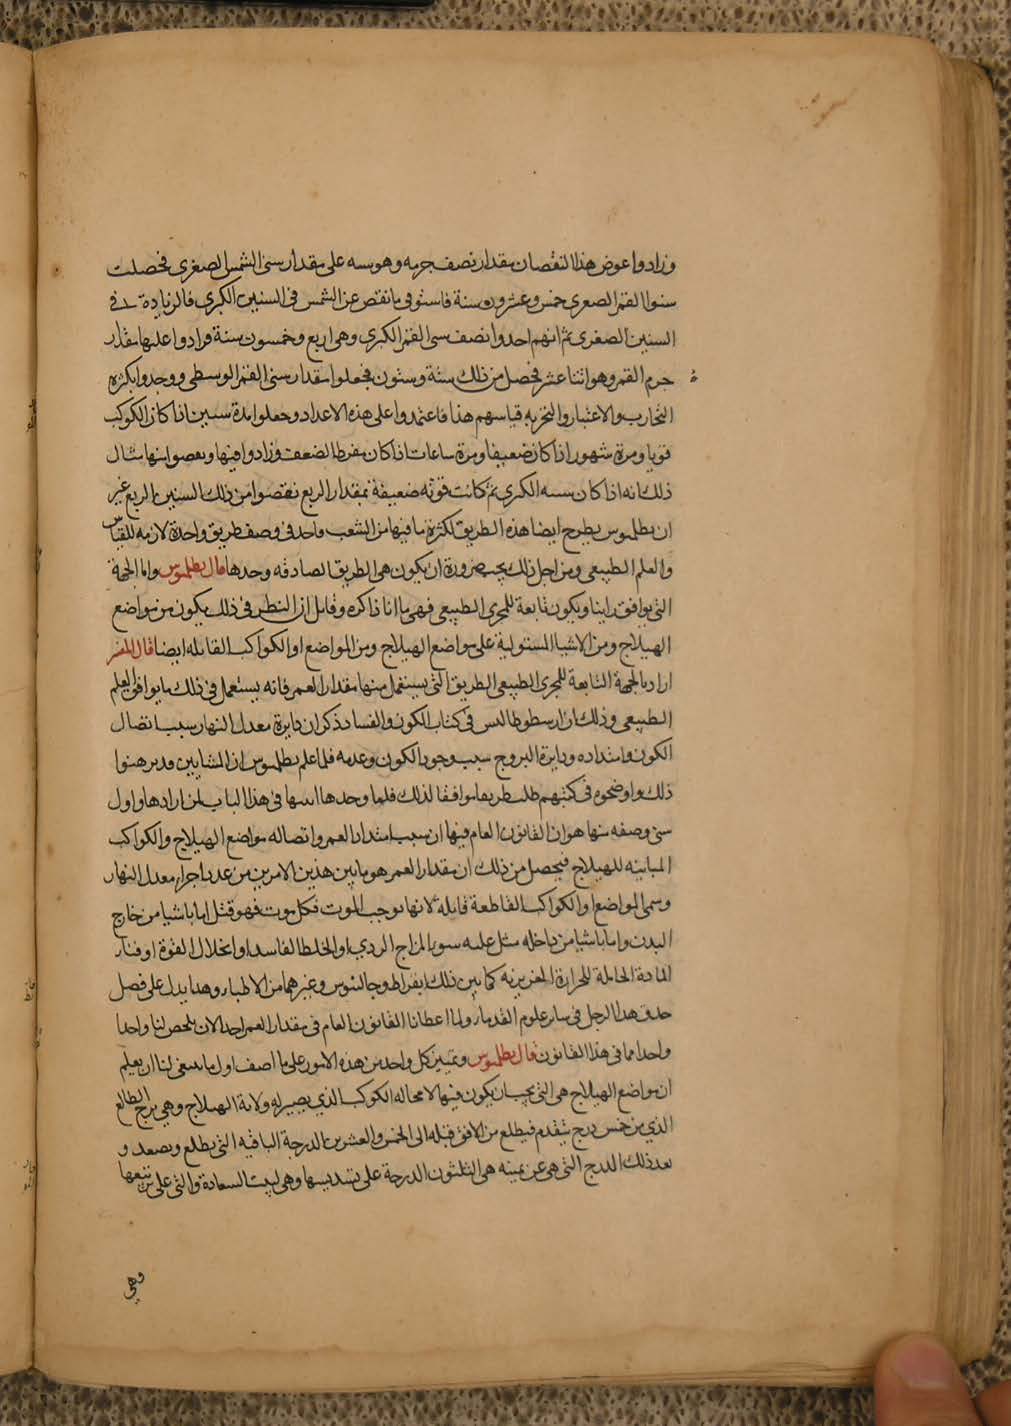 وزادوا عوض هذا النقصان مقدار نصف جرمه وهو سه على مقدار سنى الشمس الصغرى فحصلت
سنوا القمر الصغرى خمس وعشرون سنة فاستوفى ما نقص عن الشمس فى السنين الكبرى فالزيادة فى
السنين الصغرى ثم انهم اخذوا نصف سنى القمر الكبرى وهى اربع وخمسون سنة فزادوا عليها مقدار
جرم القمر وهو اثنتا عشر فحصل من ذلك ستة وستون فجعلوا مقدار سنى القمر الوسطى ووجدوا بكثرة
التجارب والاعتبار والتجربه قياسهم هذا فاعتمدوا على هذه الاعداد وجعلوا مدة سنين اذا كان الكوكب
قويا ومرة شهور اذا كان ضعيفا ومرة ساعات اذا كان مفرط الضعف وزادوا فيها ونقصوا منها مثال
ذلك انه اذا كان سنيه الكبرى ثم كانت قوته ضعيفة بمقدار الربع نقصوا من ذلك السنين الربع غير
ان بطلميوس يطرح ايضا هذه الطريق لكثرة ما فيها من الشعب واخذ فى وصف طريق واحدة لازمه للقياس
والعلم الطبيعى ومن اجل ذلك يجب ضرورة ان يكون هى الطريق الصادقه وحدها قال بطلميوس واما الجهة
التى يوافق راينا ويكون تابعة للمجرى الطبيعى فهى ما انا ذاكره وقايل ان النظر فى ذلك يكون من مواضع
الهيلاج ومن الاشيا المستولية على مواضع الهيلاج ومن المواضع او الكواكب القاتله ايضا قال المفسر
اراد بالجهة التابعة للمجرى الطبيعى الطريق التى يستعمل منها مقدار العمر فانه يستعمل فى ذلك ما يوافق العلم
الطبيعى وذلك ان ارسطوطاليس فى كتاب الكون والفساد ذكر ان دايرة معدل النهار سبب اتصال
الكون وامتداده ودايرة البروج سبب وجود الكون وعدمه فلما علم بطلميوس ان المشايين قد برهنوا
ذلك واوضحوه فى كتبهم طلب طريقا موافقا لذلك فلما وجدها اثبتها فى هذا الباب لمن ارادها واول
شى وصفه منها هو ان القانون العام فيها ان سبب امتداد العمر واتصاله مواضع الهيلاج والكواكب
المباينه للهيلاج فيحصل من ذلك ان مقدار العمر هو ما بين هذين الامرين من عدد اجزاء معدل النهار
وسمى المواضع او الكواكب القاطعة قاتله لانها توجب الموت فكل موت فهو قتل اما باشيا من خارج
البدن واما باشيا من داخله مثل غلبه سوء المزاج الردى او الخلط الفاسد او انحلال القوة او فناء
المادة الحاملة للحرارة الغريزيه كما بين ذلك ابقراط وجالينوس وغيرهما من الاطباء وهذا يدل على فضل
حذق هذا الرجل فى ساير علوم القدماء ولما اعطانا القانون العام فى مقدار العمر اخذ الان يلخص لنا واحدا
واحدا مما فى هذا القانون قال بطلميوس وتميز كل واحد من هذه الامور على ما اصف اول ما ينبغى لنا ان يعلم
ان مواضع الهيلاج هى التى يجب ان يكون فيها لا محاله الكوكب الذى يصير له ولاية الهيلاج وهى برج الطالع
الذى من خمس درج يتقدم فيطلع من الافق قبله الى الخمس والعشرين الدرجة الباقيه التى يطلع ويصعد و
بعد ذلك الدرج التى هى عن يمينه هى الثلثون الدرجة على تسديسها وهى لبيت السعادة والتى على تربيعها
وهى